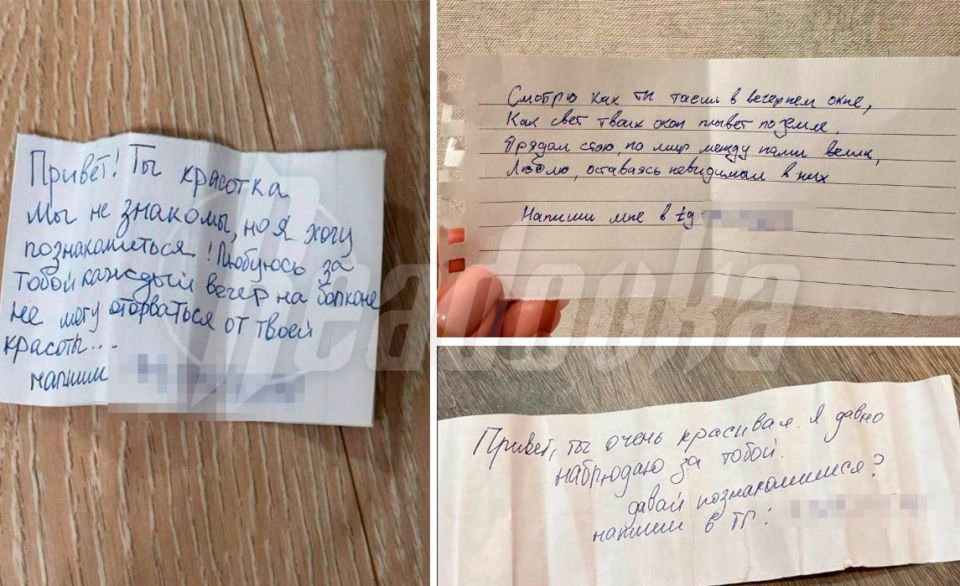 Привет! Ты красотка
Мы не знакомы, но я хочу
познакомиться! Любуюсь за
тобой каждый вечер на болконе
не могу оторваться от твоей
красоты...
напиши
Смотрю как ты таеш в вечернем окне,
Как свет твоих окон плывет по земле.
Я рядом стою, но мир между нами велик,
Люблю, оставаясь невидимым в них
Напиши мне в tg
Привет, ты очень красивая. Я давно
наблюдаю за тобой.
давай познакомимся?
напиши в ТГ:
Readovka